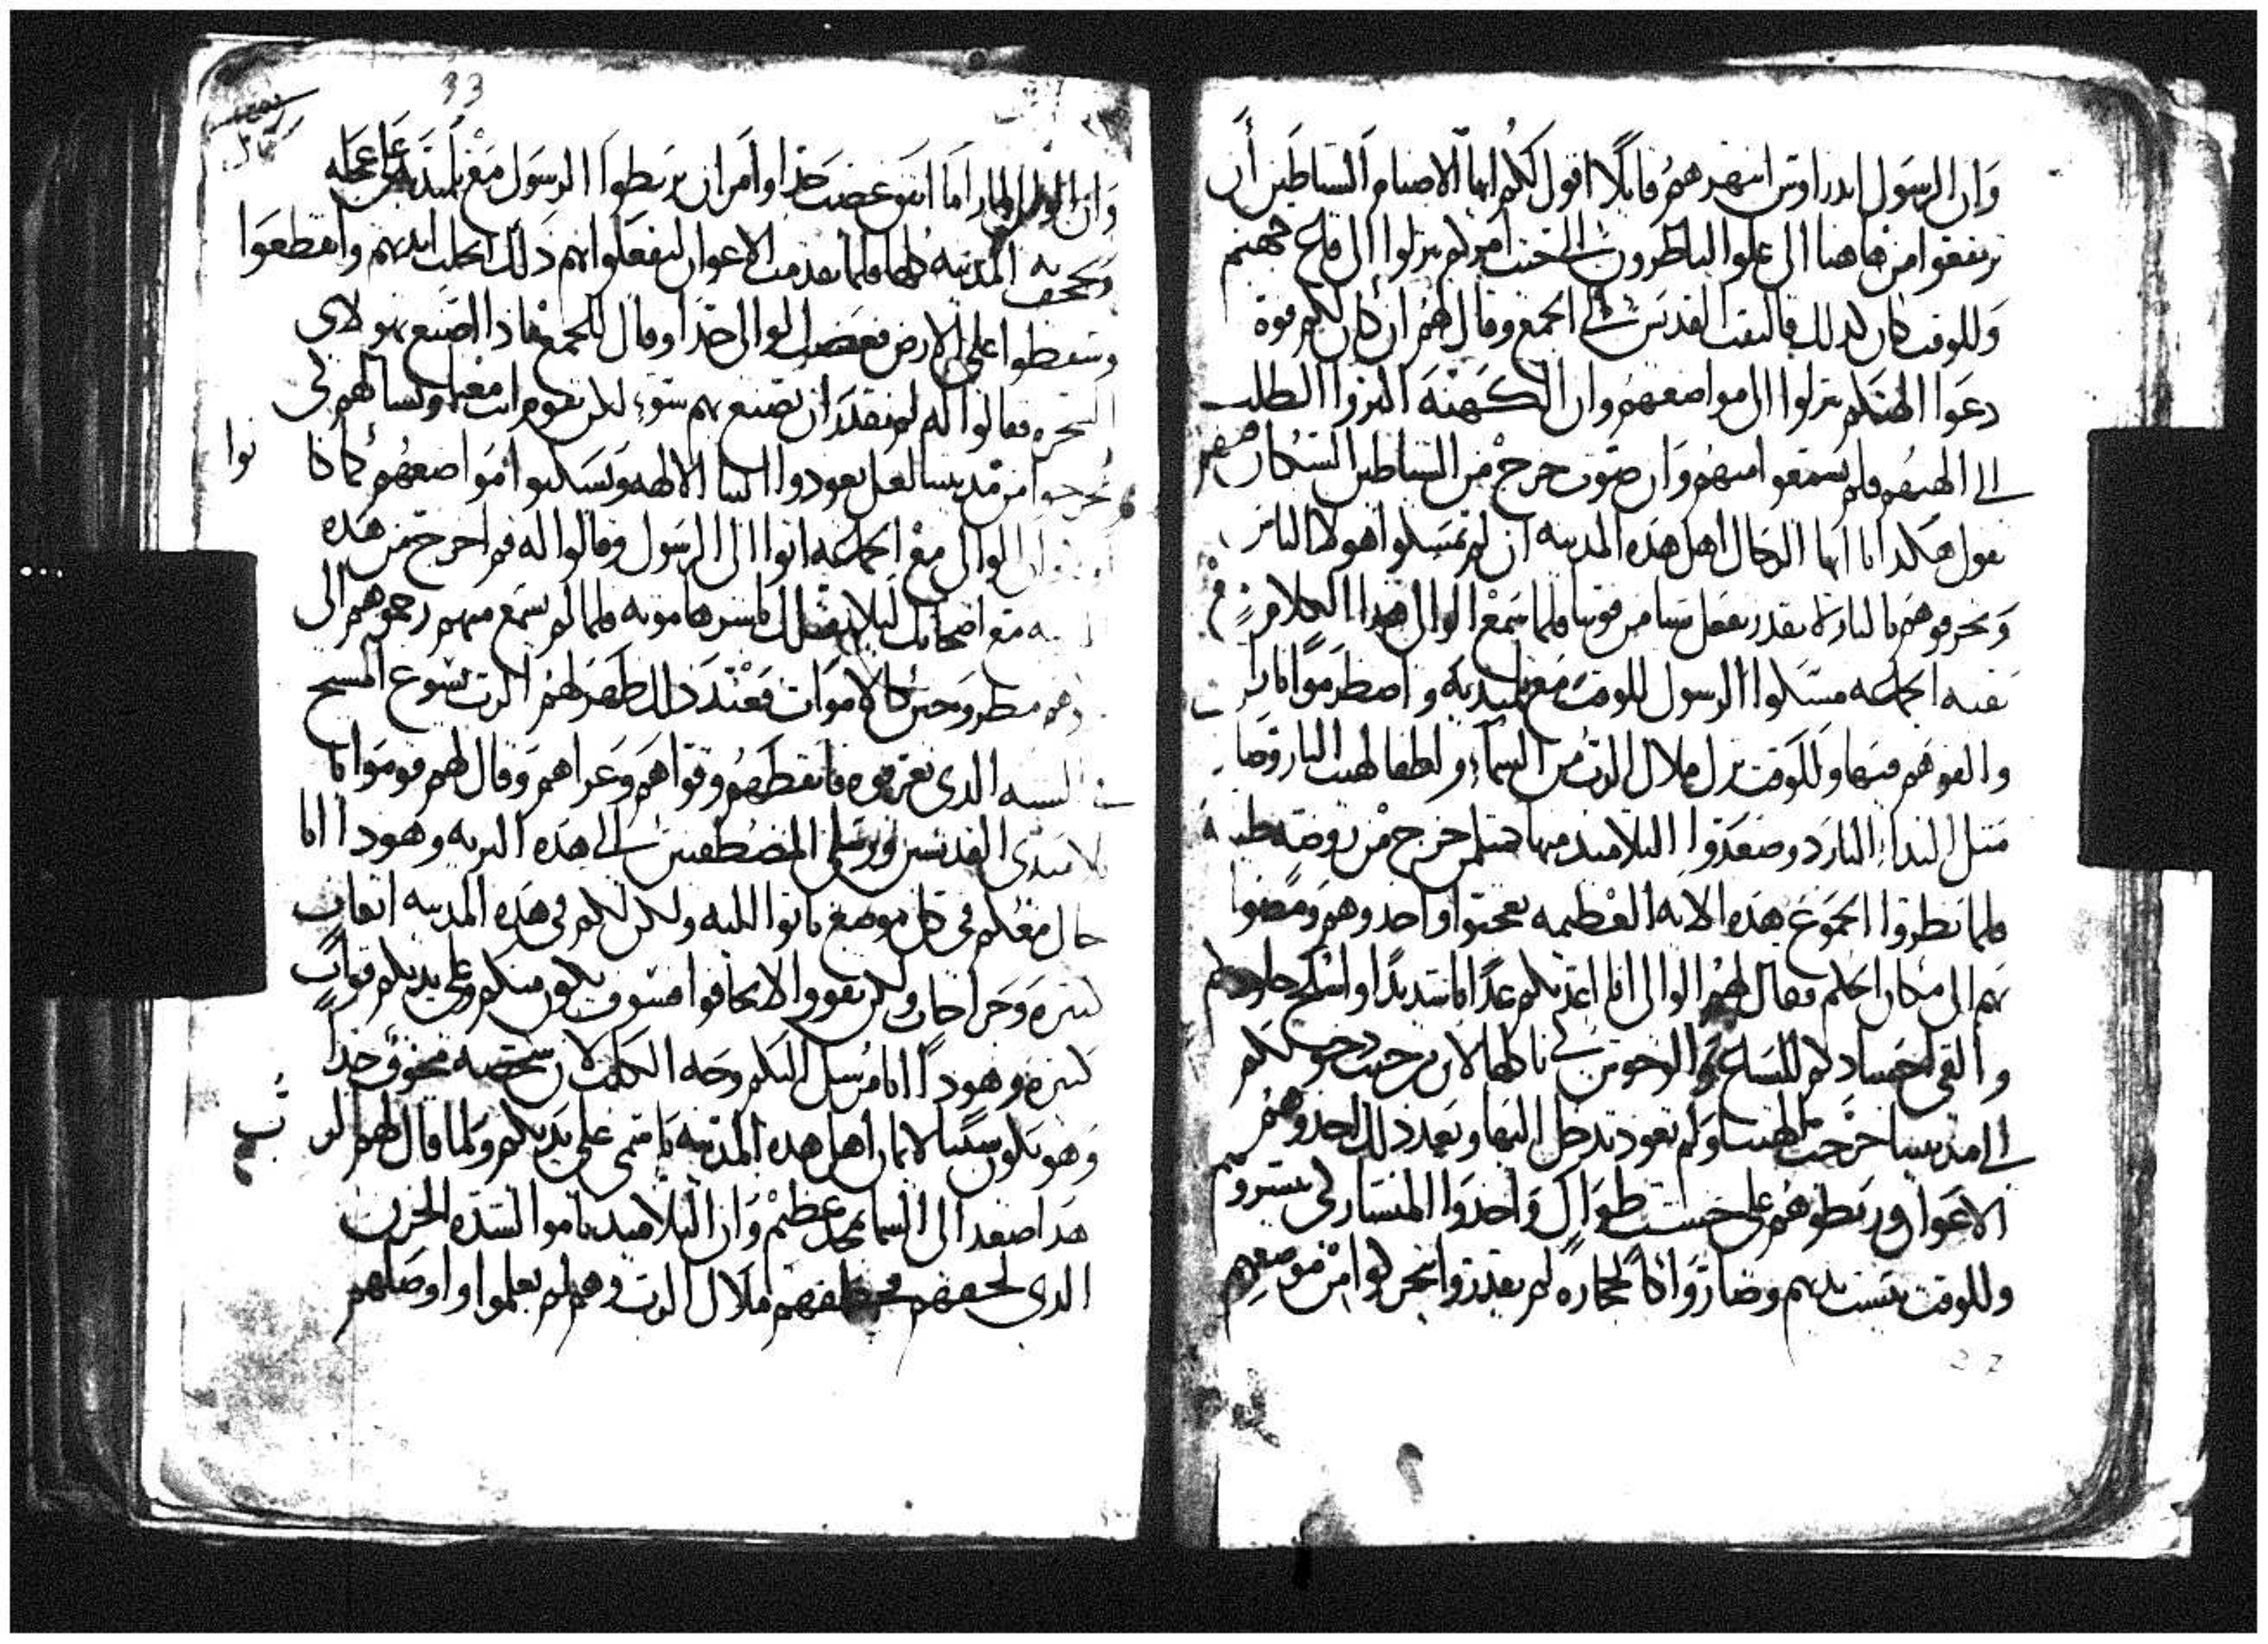 وان الرسول اندراوس انتهرهم قايلا اقول لكم ايها الاصنام الشياطين أن
ترتفعوا من هاهنا الى علوا الناظرون الى تحت امركم تنزلوا الى قاع جهنم
وللوقت كان كدلك فالتفت القديس الى الجمع وقال لهم ان كان لكم قوة
دعوا الهتكم ينزلوا الى مواضعهم وان الكهنة اكثروا الطلب
الى الهتهم فلم يسمعوا منهم وان صوت خرج من الشياطين السكان فيهم
يقول هكدا يا ايها الرجال اهل هده المدينه ان لم تمسكوا هولاء الناس
وتحرقوهم بالنار لا نقدر نفعل شيا من قوتنا فلما سمع الوالي هدا الكلام
الجماعه مسكوا الرسول للوقت مع تلميديه واضطرموا نار
والقوهم فيها وللوقت نزل ملاك الرب من السماء ولطفا لهيب النار وصار
مثل النداء البارد وصعدوا التلاميد منها كمثل من خرج من روضه طيبه
فلما نظروا الجموع هده الايه العظيمه تعجبوا واخدوهم ومضوا
بهم الى مكان الحكم فقال لهم الوالي انا اعدبكم عدابا شديدا واسلخ جلودكم
والقي اجسادكم للسباع الوحوش تاكلها لان من حيث دخولكم
الى مدينتنا خرجت الهتنا ولم تعود تدخل اليها وبعد دلك اخدوهم
الاعوان وربطوهم على خشب طوال واخدوا المنشار لكي ينشروهم
وللوقت يبست يديهم وصاروا كالحجاره لم يقدروا يتحركوا من موضعهم
33
وان الوالي اما انتوا غضب جدا وامر ان يربطوا الرسول مع تلميديه على عجله
المدينه كلها فلما تقدمت الاعوان ليفعلوا بهم دلك انحلت ايديهم وانقطعوا
وسقطوا على الارض فغضب الوالي جدا وقال للجمع مادا اصنع بهولاى
السحره فقالوا له لم نقدر ان نصنع بهم سوء لكن نقوم انت معنا ونسالهم لكي
يخرجوا من مدينتنا لعل يعودوا الينا الالهه ويسكنوا مواضعهم كما كانوا
الوالي مع الجماعه اتوا الى الرسول وقالوا له قم اخرج من هده
مع اصحابك ليلا نقتلك باشرها موته فلما لم يسمع منهم رجموهم الى
كالاموات فعند دلك ظهر لهم الرب يسوع المسيح
الشبه الدى يعرفوه فايقظهم وقواهم وعزاهم وقال لهم قوموا يا
تلاميدى القديسين ورسلي المصطفين الى هده البريه وهودا انا
حال معكم في كل موضع باتوا اليه ولكن لكم في هده المدينه اتعاب
كثيره وجراحات ولكن تقووا لا تخافوا فسوف يكون منكم وعلى يديكم قوات
كثيره وهودا انا مرسل اليكم وجه الكلب لان شخصه مخوف جدا
وهو يكون سببا لايمان اهل هده المدينه باسمى على يديكم ولما قال لهم الرب
هدا صعد الى السما بمجد عظيم وان التلاميد ناموا لشدة الحزن
الدى لحقهم فخطفهم ملاك الرب وهم لم يعلموا واوصلهم